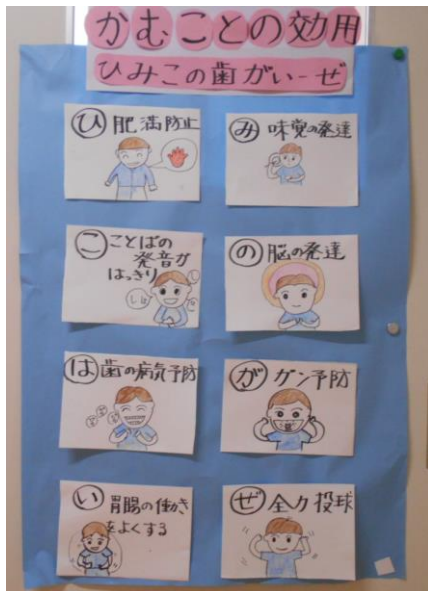 かむことの効用
ひみこの歯がいーぜ
ひ 肥満防止
み 味覚の発達
こ ことばの
発音が
はっきり
の 脳の発達
は 歯の病気予防
が ガン予防
い 胃腸の働き
をよくする
ぜ 全力投球